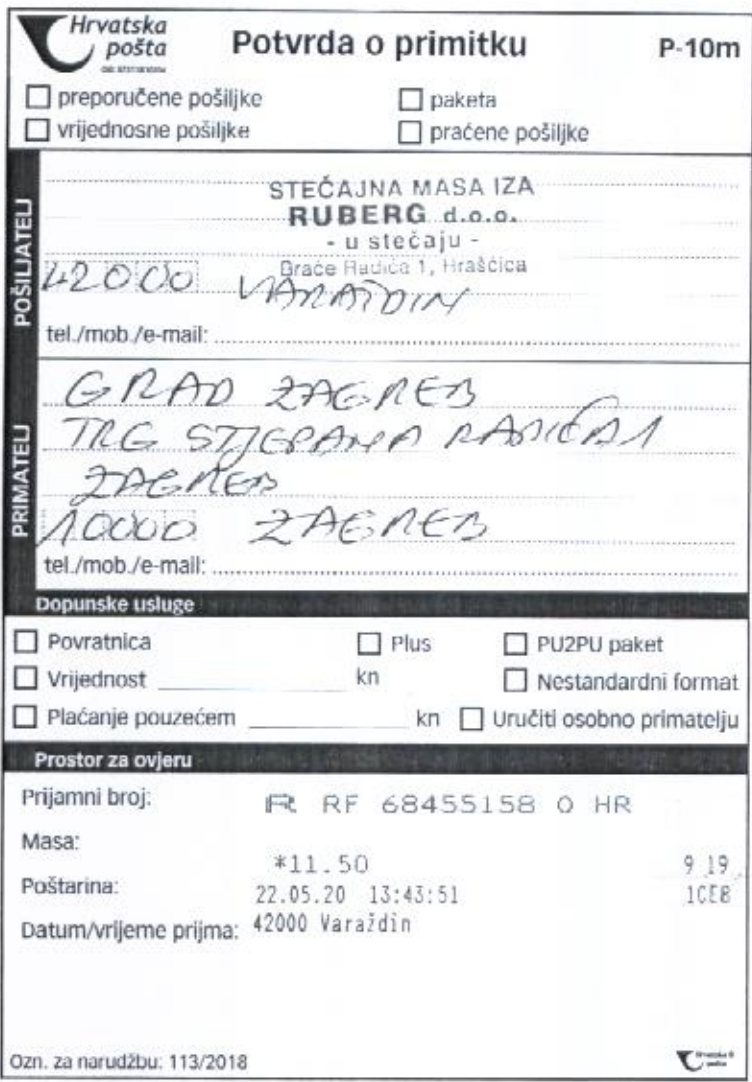 Hrvatska
pošta
Potvrda o primitku
P-10m
preporučene pošiljke
paketa
vrijednosne pošiljke
praćene pošiljke
POŠILJATELJ
STEČAJNA MASA IZA
RUBERG d.o.o.
- u stečaju -
Braće Radića 1, Hrašćica
42000 VARAŽDIN
tel./mob./e-mail:
PRIMATELJ
GRAD ZAGREB
TRG STJEPANA RADIĆA 1
ZAGREB
10000 ZAGREB
tel./mob./e-mail:
Dopunske usluge
Povratnica
Plus
PU2PU paket
Vrijednost kn
Nestandardni format
Plaćanje pouzećem kn
Uručiti osobno primatelju
Prostor za ovjeru
Prijamni broj: R RF 68455158 0 HR
Masa:
*11.50 9 19
Poštarina:
22.05.20 13:43:51 1CE8
Datum/vrijeme prijma: 42000 Varaždin
Ozn. za narudžbu: 113/2018